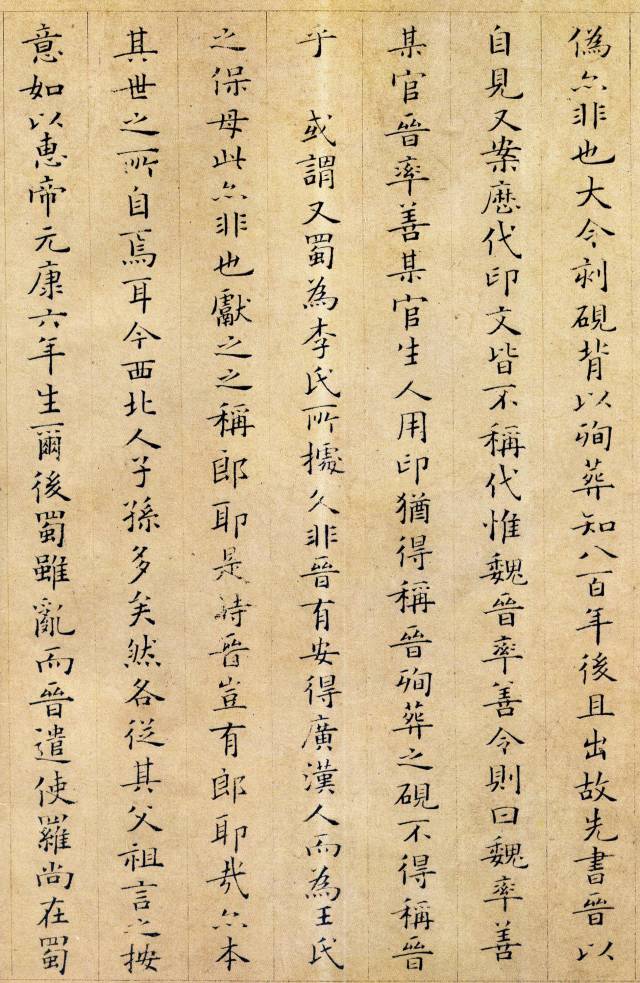 偽尒非也大令刻硯背以殉葬知八百年後且出故先書晉以
自見又案歷代印文皆不稱代惟魏晉率善令則曰魏率善
某官晉率善某官生人用印猶得稱晉殉葬之硯不得稱晉
乎　或謂又蜀為李氏所據久非晉有安得廣漢人而為王氏
之保母此尒非也獻之之稱郎耶是時晉豈有郎耶哉尒本
其世之所自焉耳今西北人子孫多矣然各從其父祖言之按
意如以惠帝元康六年生爾後蜀雖亂而晉遣使羅尚在蜀